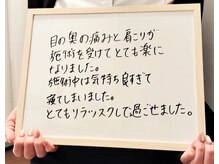 目の奥の痛みと肩こりが
施術を受けてとても楽に
なりました。
施術中は気持ち良すぎて
寝てしまいました。
とてもリラックスして過ごせました。